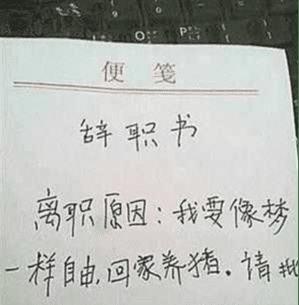 O P
便笺
辞职书
离职原因：我要像梦
一样自由，回家养猪。请批